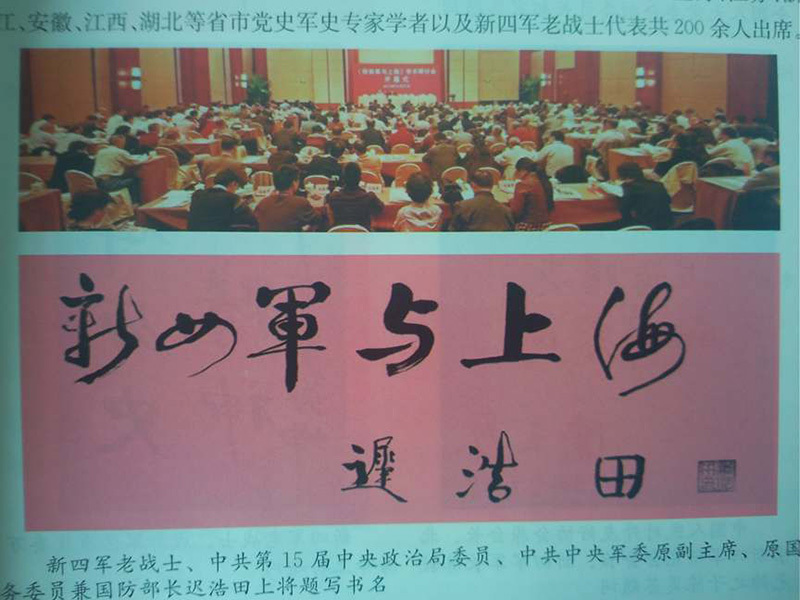 江、安徽、江西、湖北等省市党史军史专家学者以及新四军老战士代表共200余人出席。
《新四军与上海》学术研讨会
开幕式
新四軍与上海
遲浩田
新四军老战士、中共第15届中央政治局委员、中共中央军委原副主席、原国
务委员兼国防部长迟浩田上将题写书名